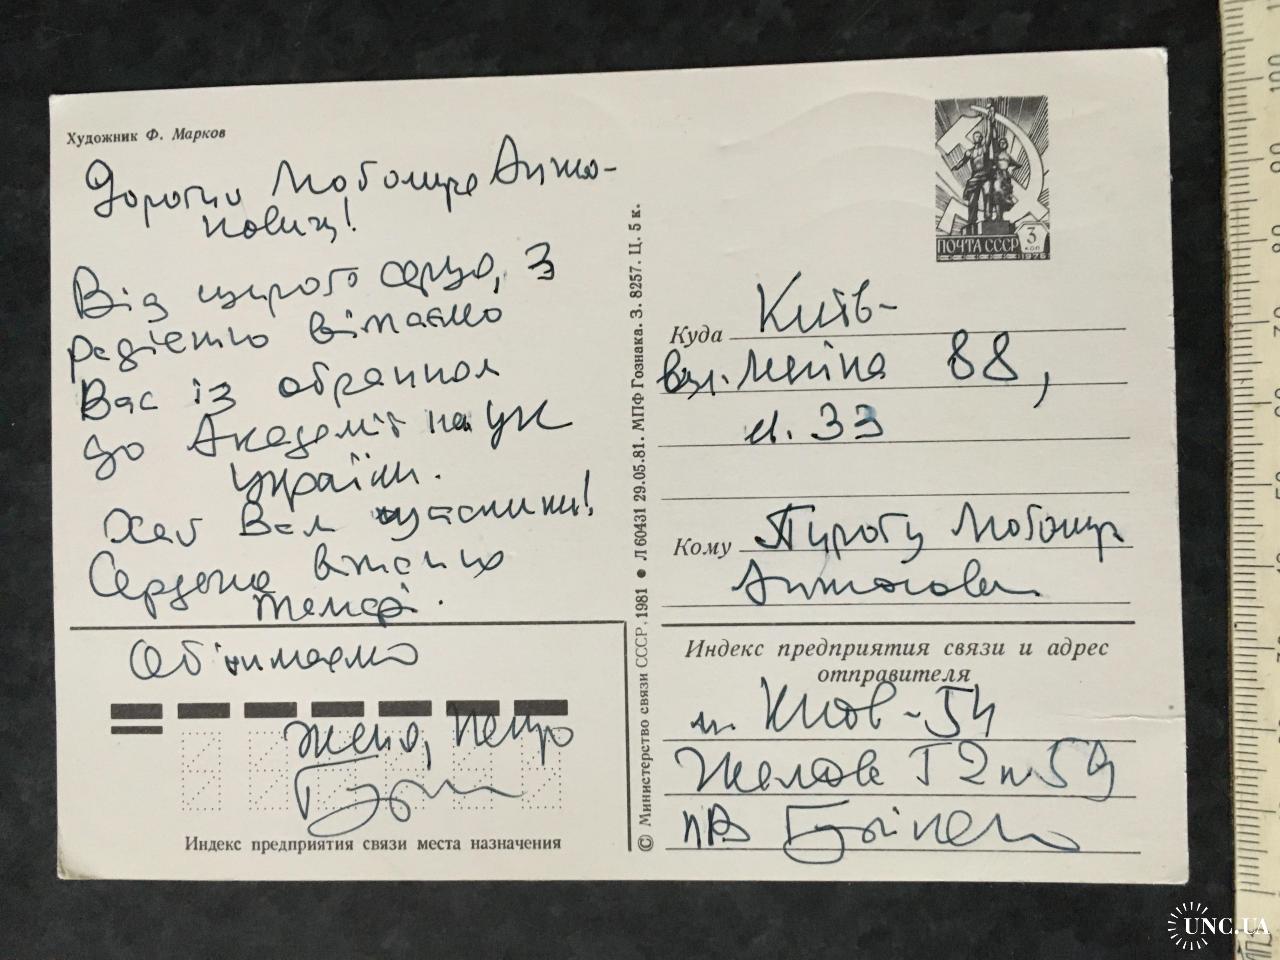 Художник Ф. Марков
Дорогий Любомире Анто-
нович!
Від щирого серця, з
радістю вітаємо
Вас із обранням
до Академії наук
України.
Хай Вам щастить!
Сердечно
Обіймаємо
Женя, Петро
Индекс предприятия связи места назначения
© Министерство связи СССР. 1981 ● Л 60431 29.05.81. МПФ Гознака. З. 8257. Ц. 5 к.
ПОЧТА СССР
3
КОП
1976
Куда Київ-
вул. Леніна 88,
33
Кому Пирогу Любомир
Антонов
Индекс предприятия связи и адрес
отправителя
м. Київ-54
54
UNC.UA